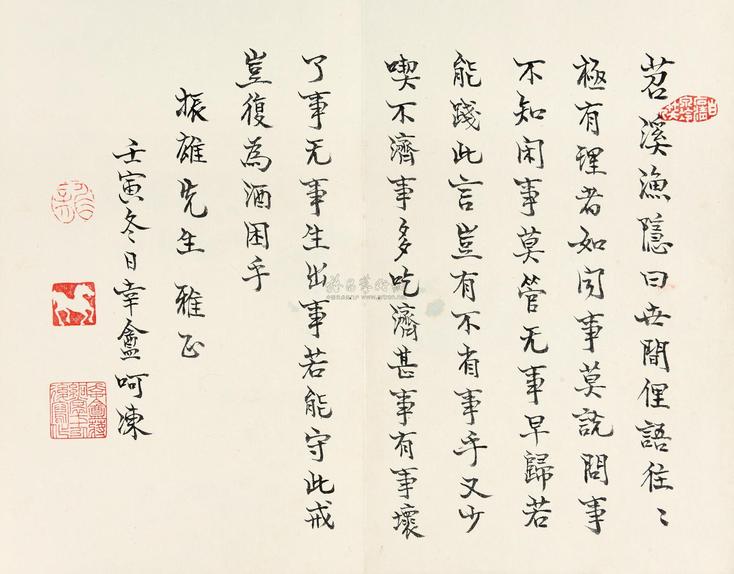 苕溪漁隱曰世間俚語往〻
極有理者如閑事莫說問事
不知闲事莫管无事早歸若
能踐此言豈有不省事乎又少
喫不濟事多吃濟甚事有事壞
了事无事生出事若能守此戒
豈復為酒困乎
振雄先生 雅正
壬寅冬日幸盦呵凍